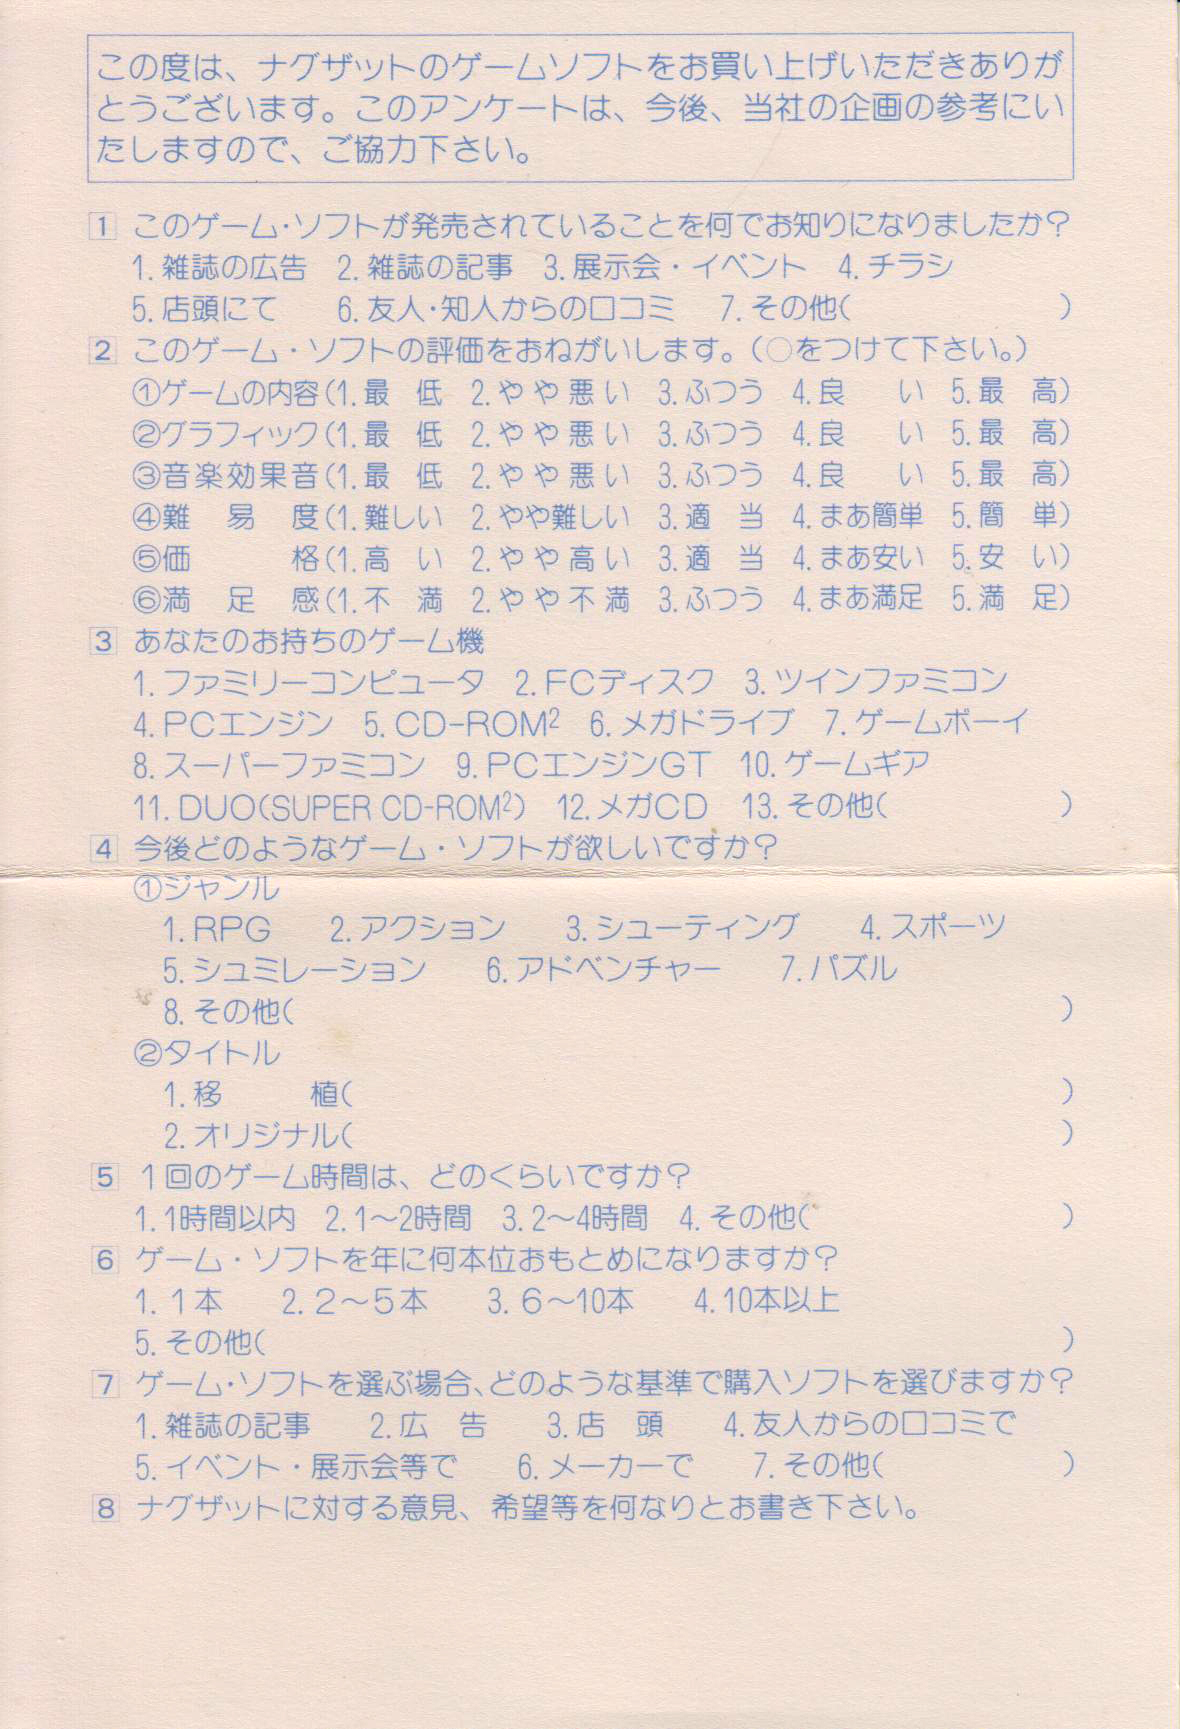 この度は、ナグザットのゲームソフトをお買い上げいただきありが
とうございます。このアンケートは、今後、当社の企画の参考にい
たしますので、ご協力下さい。
1 このゲーム・ソフトが発売されていることを何でお知りになりましたか？
1. 雑誌の広告 2. 雑誌の記事 3. 展示会・イベント 4. チラシ
5. 店頭にて 6. 友人・知人からの口コミ 7. その他( )
2 このゲーム・ソフトの評価をおねがいします。(○をつけて下さい。)
①ゲームの内容(1. 最 低 2. やや悪い 3. ふつう 4. 良 い 5. 最 高)
②グラフィック(1. 最 低 2. やや悪い 3. ふつう 4. 良 い 5. 最 高)
③音楽効果音(1. 最 低 2. やや悪い 3. ふつう 4. 良 い 5. 最 高)
④難 易 度(1. 難しい 2. やや難しい 3. 適 当 4. まあ簡単 5. 簡 単)
⑤価 格(1. 高 い 2. やや高い 3. 適 当 4. まあ安い 5. 安 い)
⑥満 足 感(1. 不 満 2. やや不満 3. ふつう 4. まあ満足 5. 満 足)
3 あなたのお持ちのゲーム機
1. ファミリーコンピュータ 2. FCディスク 3. ツインファミコン
4. PCエンジン 5. CD-ROM² 6. メガドライブ 7. ゲームボーイ
8. スーパーファミコン 9. PCエンジンGT 10. ゲームギア
11. DUO(SUPER CD-ROM²) 12. メガCD 13. その他( )
4 今後どのようなゲーム・ソフトが欲しいですか？
①ジャンル
1. RPG 2. アクション 3. シューティング 4. スポーツ
5. シュミレーション 6. アドベンチャー 7. パズル
8. その他( )
②タイトル
1. 移 植( )
2. オリジナル( )
5 1回のゲーム時間は、どのくらいですか？
1. 1時間以内 2. 1〜2時間 3. 2〜4時間 4. その他( )
6 ゲーム・ソフトを年に何本位おもとめになりますか？
1. 1本 2. 2〜5本 3. 6〜10本 4. 10本以上
5. その他( )
7 ゲーム・ソフトを選ぶ場合、どのような基準で購入ソフトを選びますか？
1. 雑誌の記事 2. 広 告 3. 店 頭 4. 友人からの口コミで
5. イベント・展示会等で 6. メーカーで 7. その他( )
8 ナグザットに対する意見、希望等を何なりとお書き下さい。